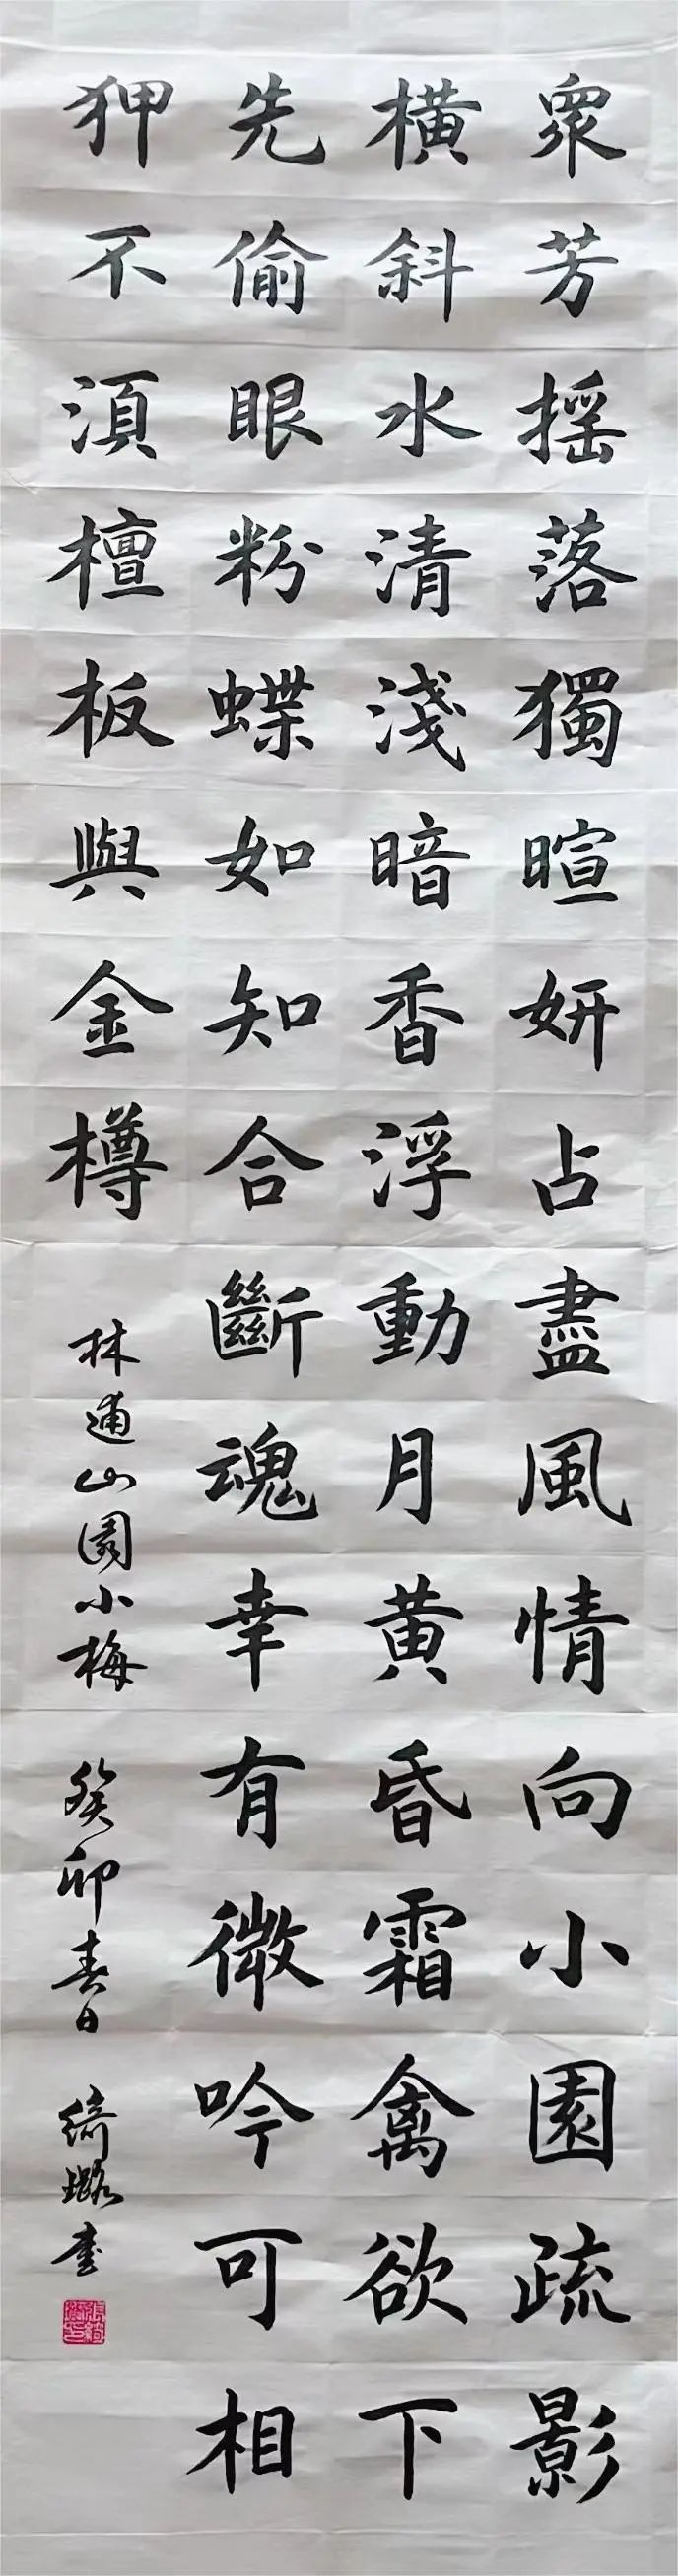 衆芳揺落獨暄妍占盡風情向小園疏影
橫斜水清淺暗香浮動月黄昏霜禽欲下
先偷眼粉蝶如知合斷魂幸有微吟可相
狎不湏檀板與金樽
林逋山園小梅
癸卯春日
綺璐書